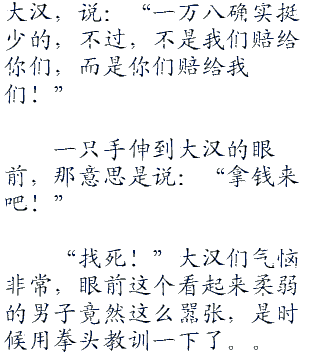 大汉，说：“一万八确实挺
少的，不过，不是我们赔给
你们，而是你们赔给我
们！”
一只手伸到大汉的眼
前，那意思是说：“拿钱来
吧！”
“找死！”大汉们气恼
非常，眼前这个看起来柔弱
的男子竟然这么嚣张，是时
候用拳头教训一下了。。